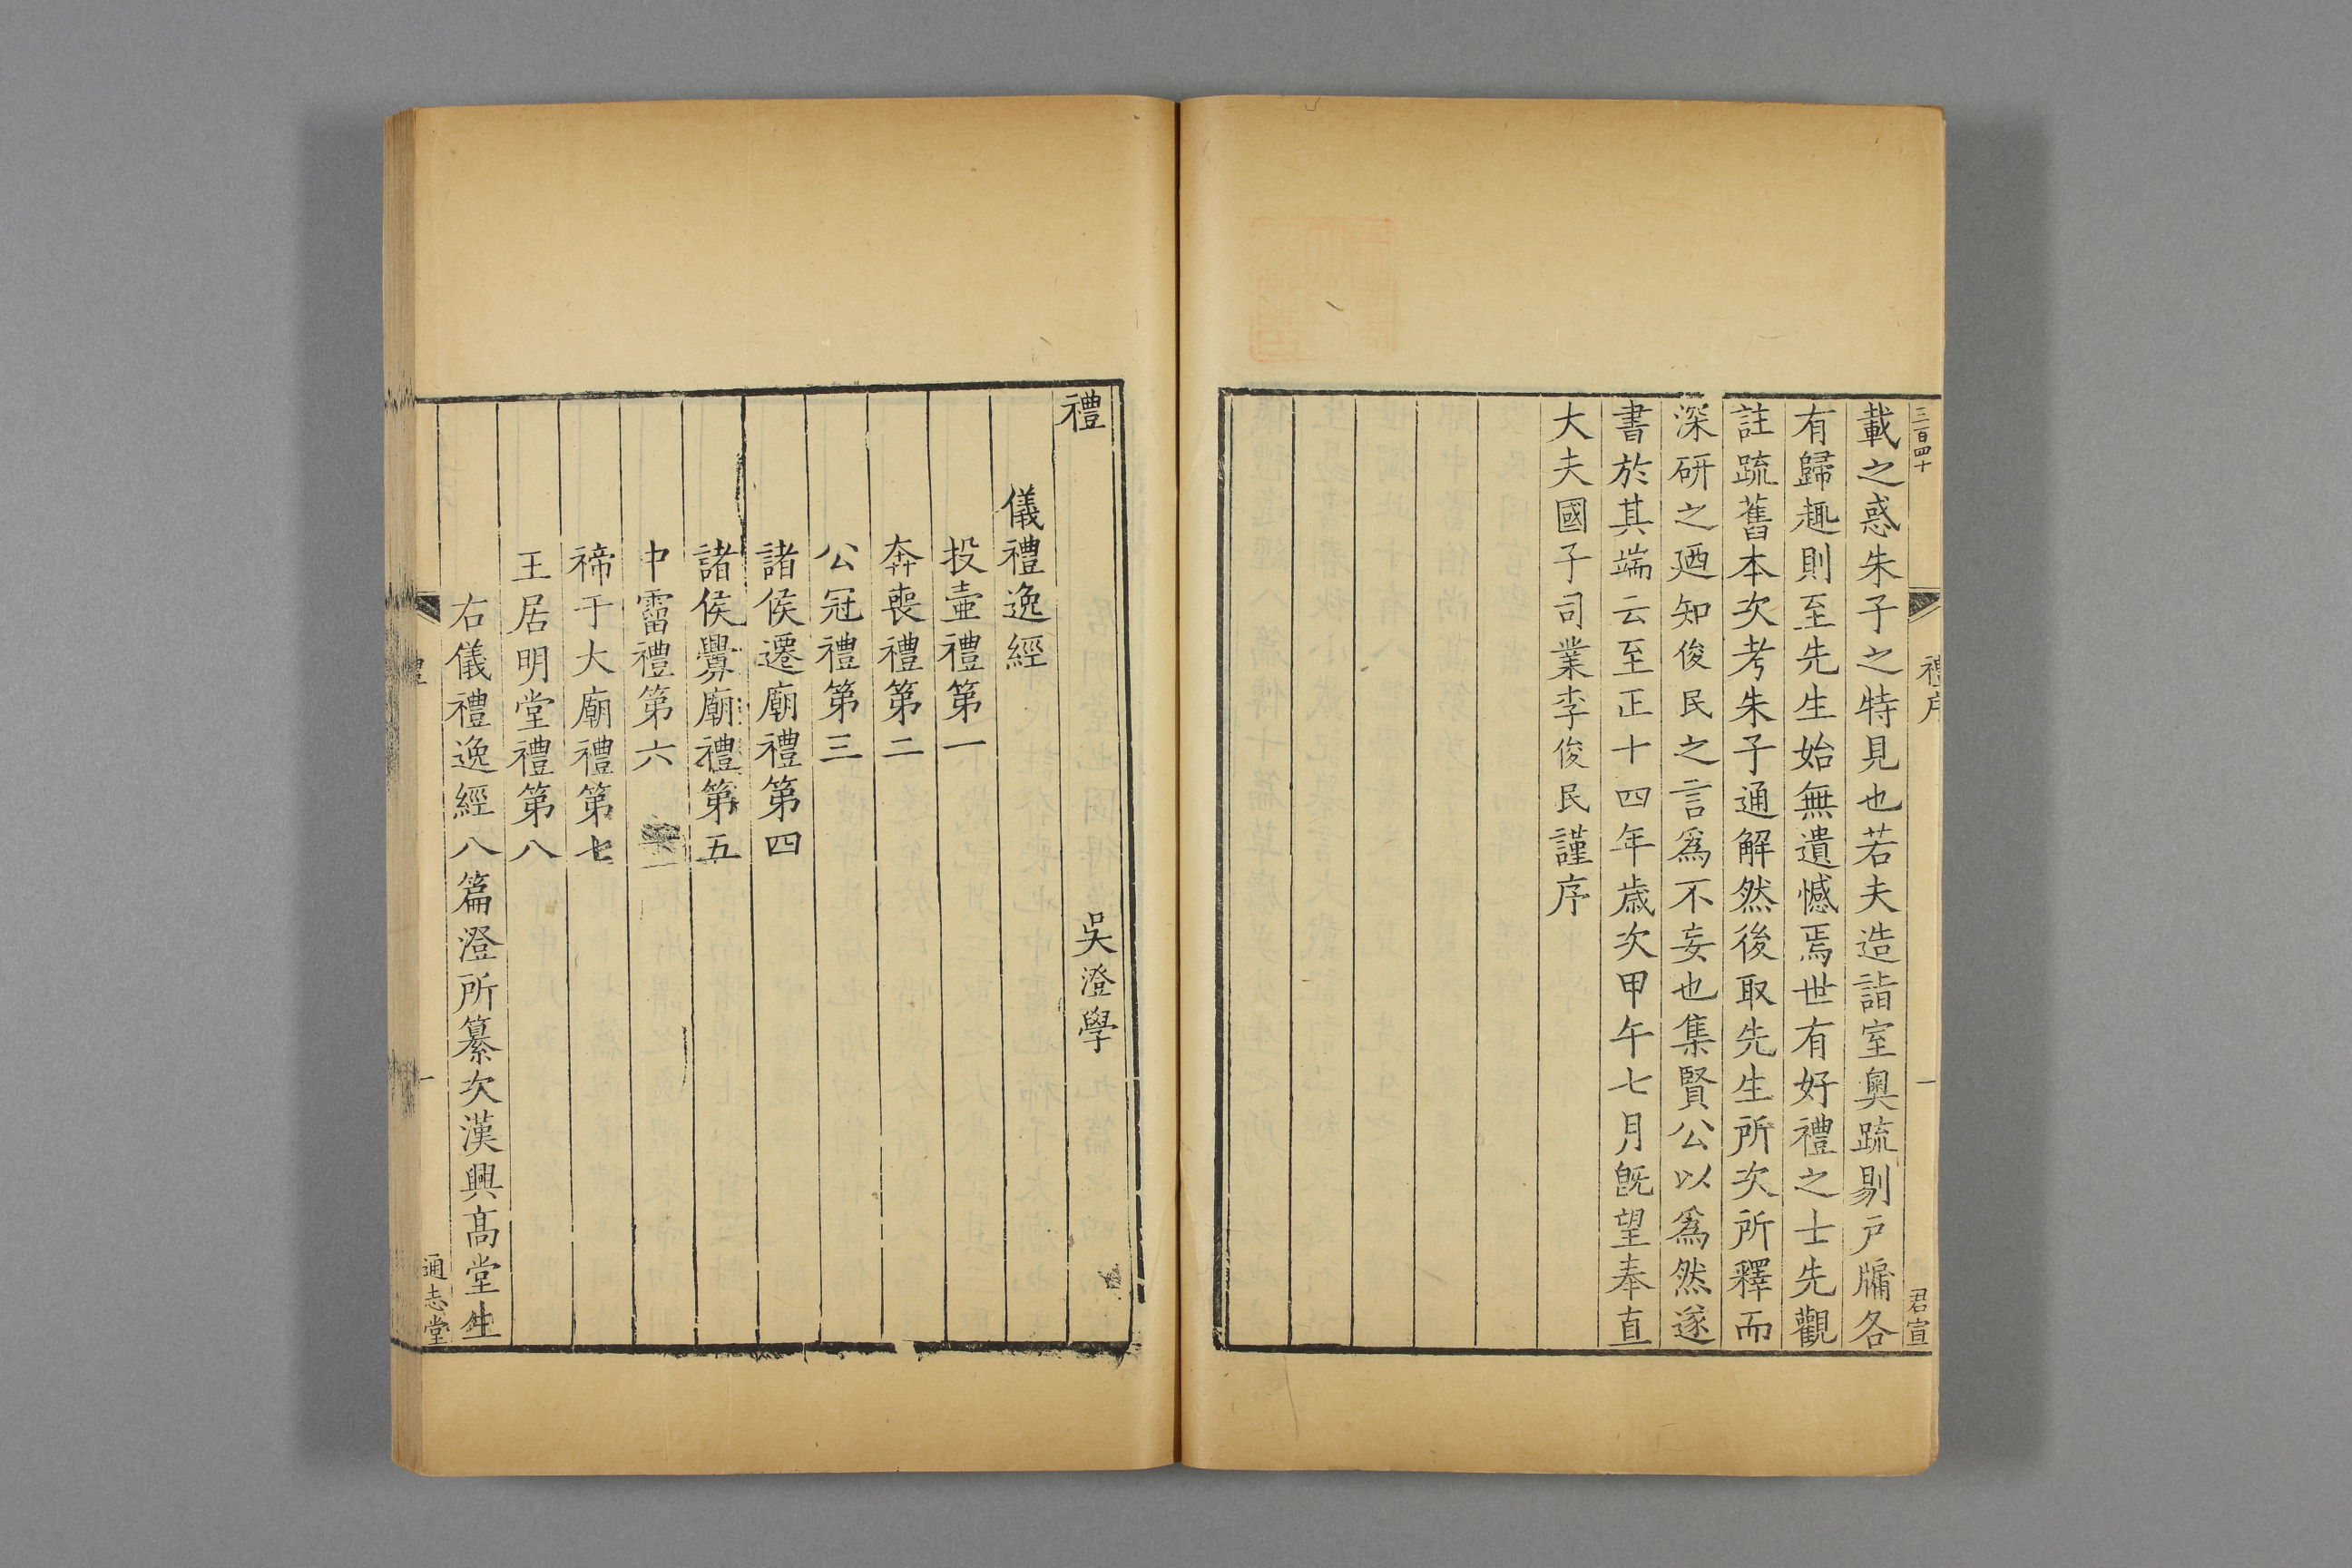 三百四十
禮序
一
君宣
載之惑朱子之特見也若夫造詣室奧疏剔戸牖各
有歸趣則至先生始無遺憾焉世有好禮之士先觀
註疏舊本次考朱子通解然後取先生所次所釋而
深研之廼知俊民之言爲不妄也集賢公以爲然遂
書於其端云至正十四年歳次甲午七月旣望奉直
大夫國子司業李俊民謹序
禮
吳澄學
儀禮逸經
投壷禮第一
奔喪禮第二
公冠禮第三
諸侯遷廟禮第四
諸侯釁廟禮第五
中霤禮第六
禘于大廟禮第七
王居明堂禮第八
右儀禮逸經八篇澄所纂次漢興髙堂生
禮
一
通志堂